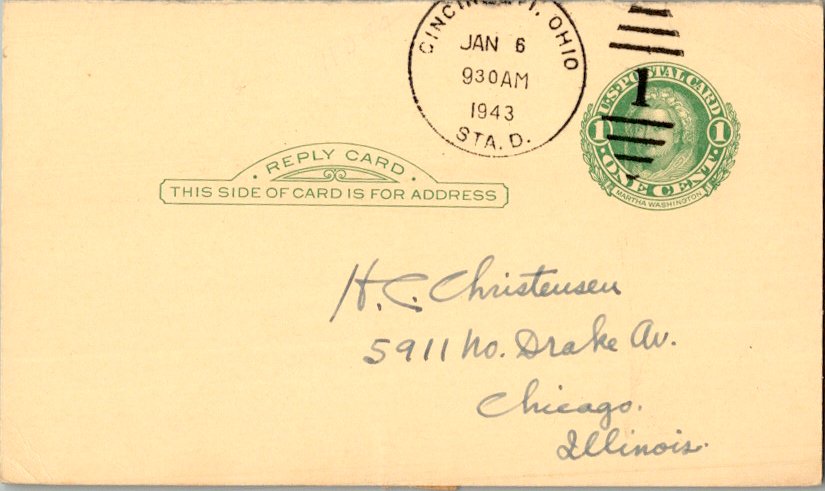 CINCINNATI, OHIO
JAN 6
930AM
1943
STA. D.
1
U.S. POSTAL CARD
1 1
· ONE CENT ·
MARTHA WASHINGTON
· REPLY CARD ·
THIS SIDE OF CARD IS FOR ADDRESS
H. C. Christensen
5911 No. Drake Av.
Chicago.
Illinois.